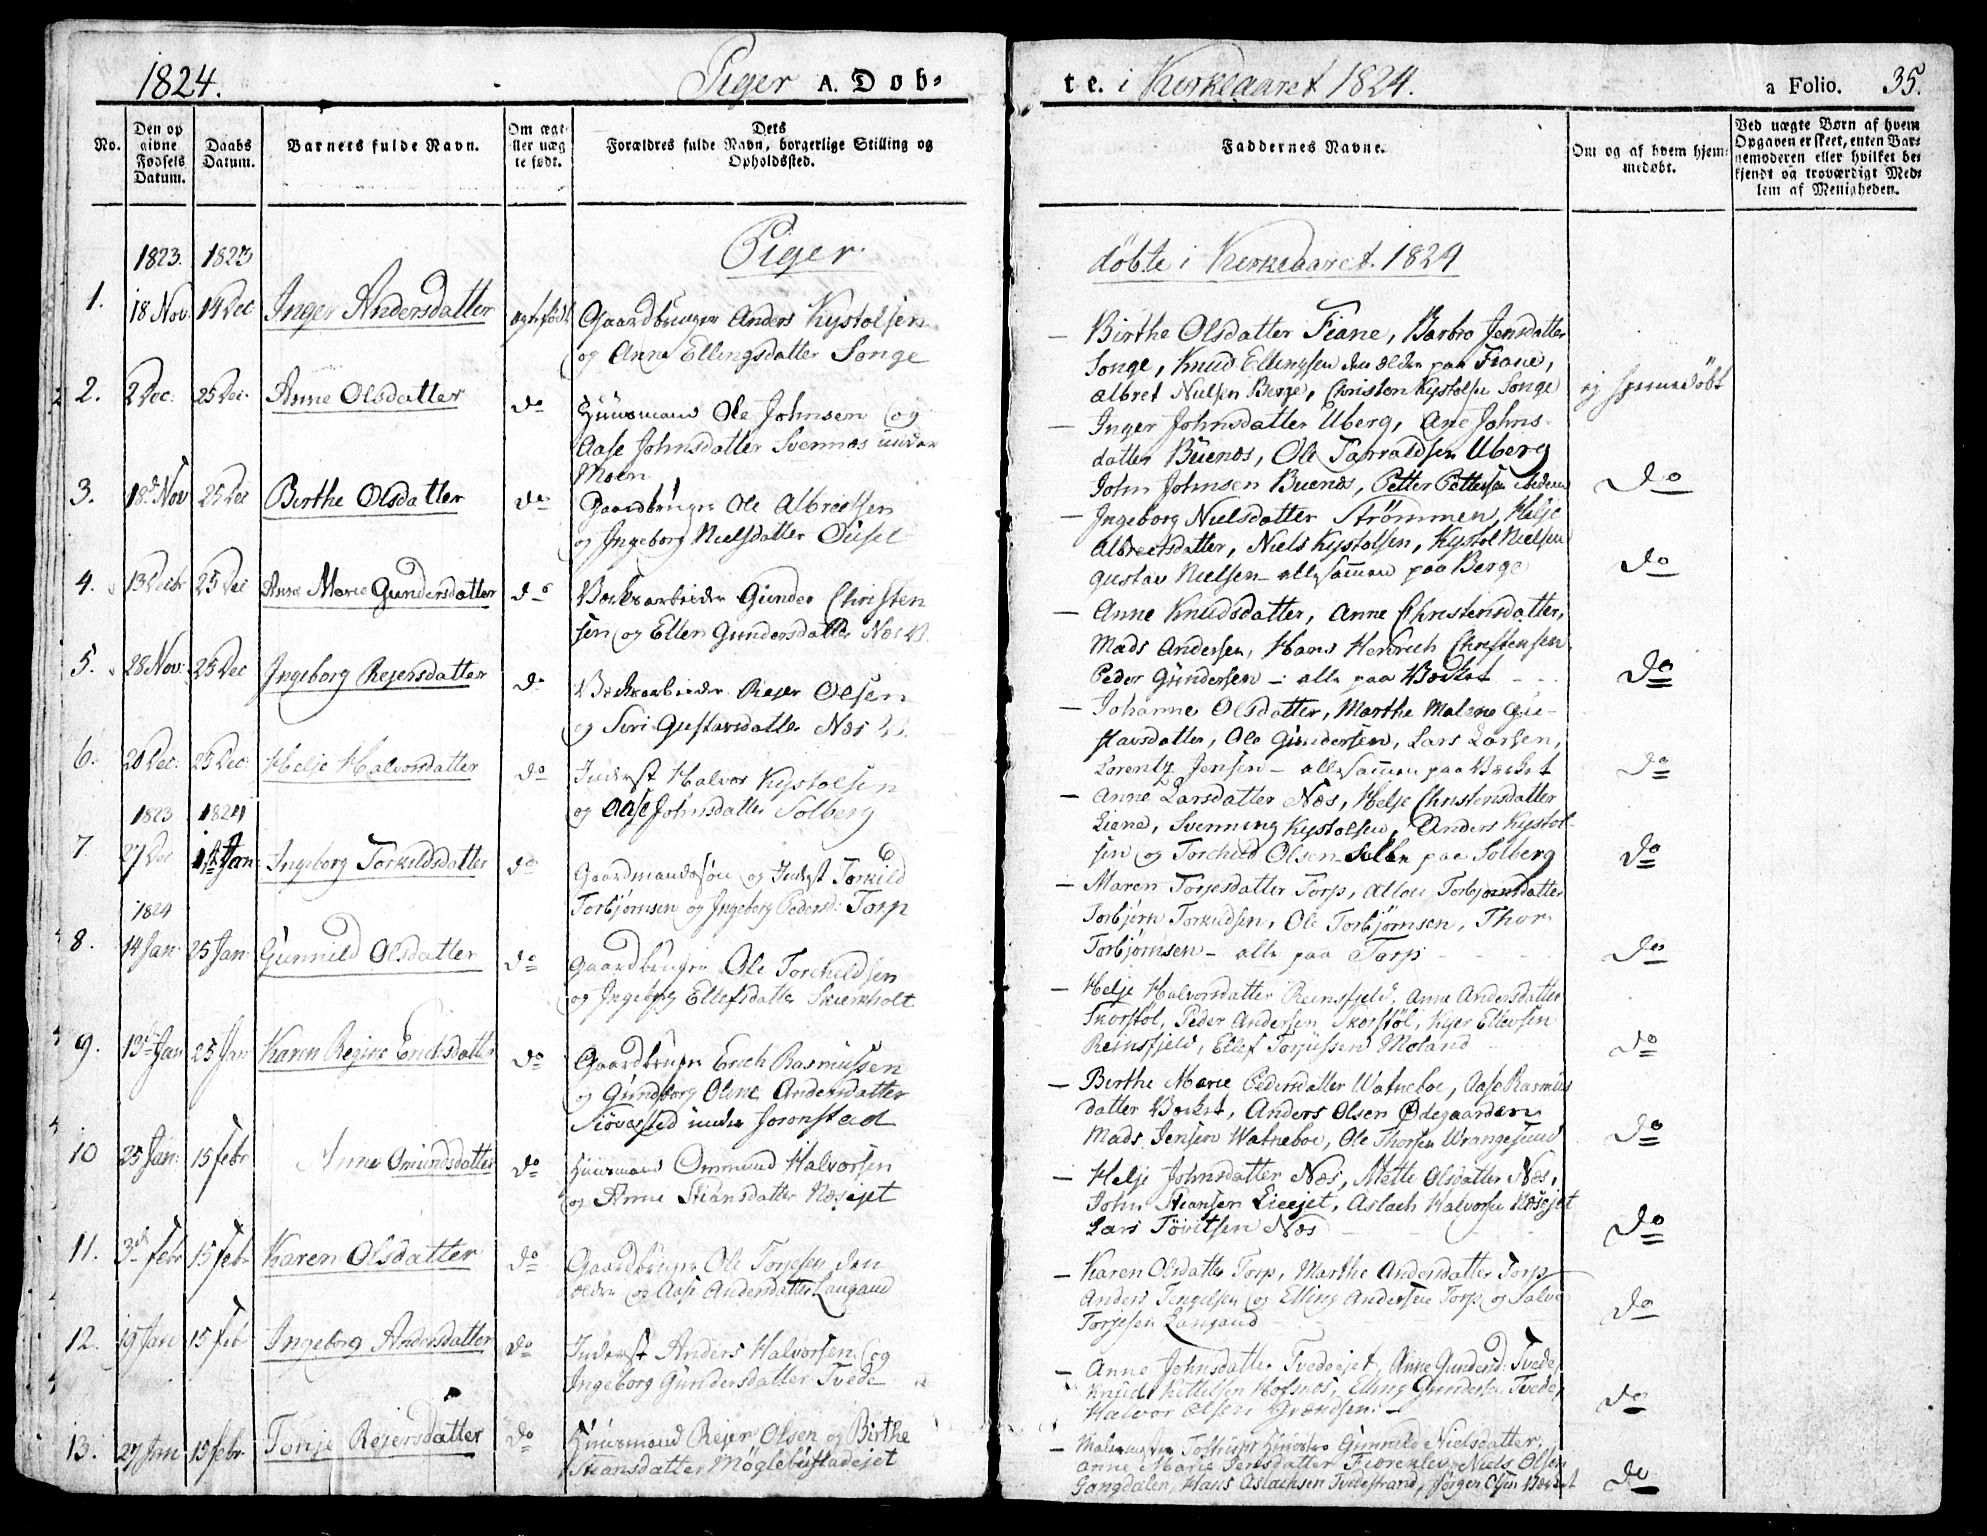 1824.
Piger A. Døb-
No.
Den op
givne
Fødsels
Datum.
Daabs
Datum.
Barnets fulde Navn.
Om ægt-
te født.
Dets
Forældres fulde Navn, borgerlige Stilling og
Opholdssted.
Piger.
1823. 1823
1. 18 Nov. 14 Dec Inger Andersdatter Gaardbruger Anders Kystolsen
og Anne Ellingsdatter Songe
2. 2 Dec. 25 Dec. Anne Olsdatter do Huusmand Ole Johnsen og
Aase Johnsdatter Svennæs under
Moen
3. 18de Nov 25 Dec Birthe Olsdatter do Gaardbruger Ole Albretsen
og Ingeborg Nielsdatter
4. 13 Decbr 25 Dec Anne Marie Gundersdatter do Værksarbeider Gunder Christen
sen og Ellen Gundersdatter Næs V.
5. 28 Nov. 25 Dec Ingeborg Rejersdatter do Værksarbeider Rejer Olsen
og Siri Gustavsdatter Næs V.
6. 20 Dec. 25 Dec. Helje Halvorsdatter do Inderst Halvor Kystolsen
og Aase Johnsdatter Solberg
1823 1824
7. 27 Dec 1ste Jan. Ingeborg Torkildsdatter do Gaardmandssøn og Inderst Torkild
Torbjørnsen og Ingeborg Pedersd. Torp
1824
8. 14 Jan. 25 Jan Gunnild Olsdatter do Gaardbruger Ole Torchildsen
og Ingeborg Ellefsdatter Skiernholt
9. 13de Jan 25 Jan Karen Regine Erichsdatter do Gaardbruger Erich Rasmussen
og Gundborg Oline Andersdatter
under
10 25 Jan. 15 Febr Anne Omundsdatter do Huusmand Ommund Halvorsen
og Anne Stiansdatter Næsejet
11. 3de Febr 15 Febr Karen Olsdatter do Gaardbruger Ole Torjesen den
ældre og Aase Andersdatter Laugand
12. 19 Jan 15 Feb Ingeborg Andersdatter do Inderst Anders Halvorsen og
Ingeborg Gundersdatter Tvede
13. 27 Jan 15 Febr Tonje Rejersdatter do Huusmand Rejer Olsen og Birthe
Stiansdatter Møglebustadejet
te. i Kirkeaaret 1824.
a Folio. 35.
Faddernes Navne.
Om og af hvem hjem-
medøbt.
Ved uægte Børn af hvem
Opgaven er skeet, enten Bar-
nemoderen eller hvilket be-
kjendt og troværdigt Med-
lem af Menigheden.
døbte i Kirkeaaret 1824
— Birthe Olsdatter Fiane, Barbro Jensdatter
Songe, Knud Ellingsen den ældre paa Fiane,
Albret Nielsen Berge, Christen Kystolsen Songe ej hjemmedøbt
— Inger Johnsdatter Uberg, Ane Johns-
datter Buenæs, Ole Tarraldsen Uberg
John Johnsen Buenæs, Petter Pettersen do
— Ingeborg Nielsdatter Strømmen, Helje
Albretsdatter, Niels Kystolsen, Kystol Nielsen
Gustav Nielsen — allesammen paa Berge do
— Anne Knudsdatter, Anne Christensdatter,
Mads Andersen, Hans Henrich Christensen
Peder Gundersen — alle paa Værket do
— Johanne Olsdatter, Marthe Malene Gu-
stavsdatter, Ole Gundersen, Lars Larsen,
Lorentz Jensen — allesammen paa Værket do
— Anne Larsdatter Næs, Helje Christensdatter
Liene, Svenning Kystolsen, Anders Kystol-
sen og Torchild Olsen alle paa Solberg do
— Maren Torjesdatter Torp, Torbjørnsdatter
Torbjørn Torkildsen, Ole Torbjørnsen, Thor
Torbjørnsen — alle paa Torp do
— Helje Halvorsdatter Reinsfjeld, Anne Andersdatter
Skorstøl, Peder Andersen Skorstøl, Ellevsen
Reinsfjeld, Ellef Torjussen Moland do
— Birthe Marie Pedersdatter Watneboe, Aase Rasmus
datter Værket, Anders Olsen Ødegaarden
Mads Jensen Watneboe, Ole Thorsen Wrangesund do
— Helje Johnsdatter Næs, Mette Olsdatter Næs,
John Stiansen Lieejet, Aslach Halvorsen Næsejet
Lars Tøvitsen Næs do
— Karen Olsdatter Torp, Marthe Andersdatter Torp
Anders Tengelsen og Elling Andersen Torp og Salve
Torjesen Laugand do
— Anne Johnsdatter Tvedeejet, Anne Gundersd. Tvede,
Knud Kittelsen Hofsnæs, Elling Gundersen Tvede,
Halvor Olsen Grændsen. — do
— Gunnild Nielsdatter,
Anne Marie Jensdatter Fiæreklev, Niels Olsen
Gangdalen, Hans Aslachsen Tvedestrand, Jørgen Olsen Værket do